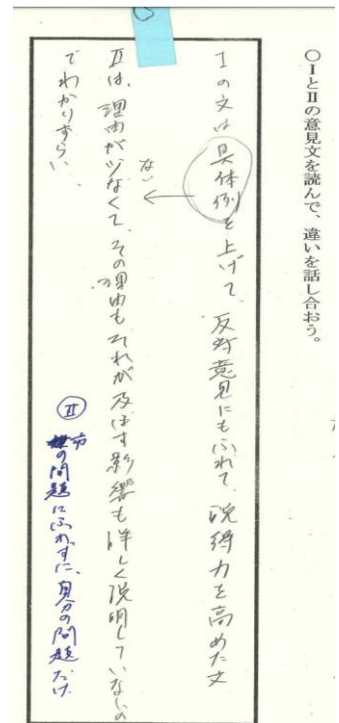 〇ⅠとⅡの意見文を読んで、違いを話し合おう。
Ⅰの文は具体例を上げて、反対意見にもふれて、説得力を高めた文
ない
Ⅱは、理由が少なくて、その理由もそれが及ぼす影響も詳しく説明していないの
でわかりずらい、
Ⅱ 市
の問題にふれずに、自分の問題だけ